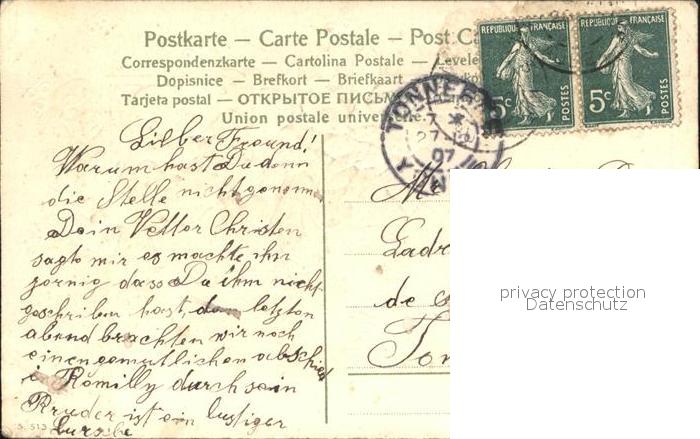 Postkarte — Carte Postale — Post
Correspondenzkarte — Cartolina Postale —
Dopisnice — Brefkort — Briefkaart
Tarjeta postal — ОТКРЫТОЕ ПИСЬМ
Union postale universelle.
REPUBLIQUE FRANÇAISE
5c
POSTES
REPUBLIQUE FRANÇAISE
5c
POSTES
TONNER
7
27
07
Lieber Freund!
Warum hast Du denn
die Stelle nicht genomm
Dein Vetter Christen
sagte mir es machte ihn
zornig dass Du ihm nicht
geschriben hast, den letzten
abend brachten wir noch
einen gemutlichen abschied
i Romilly durch sein
Bruder ist ein lustiger
bursche
Mr
de
Ton
privacy protection
Datenschutz